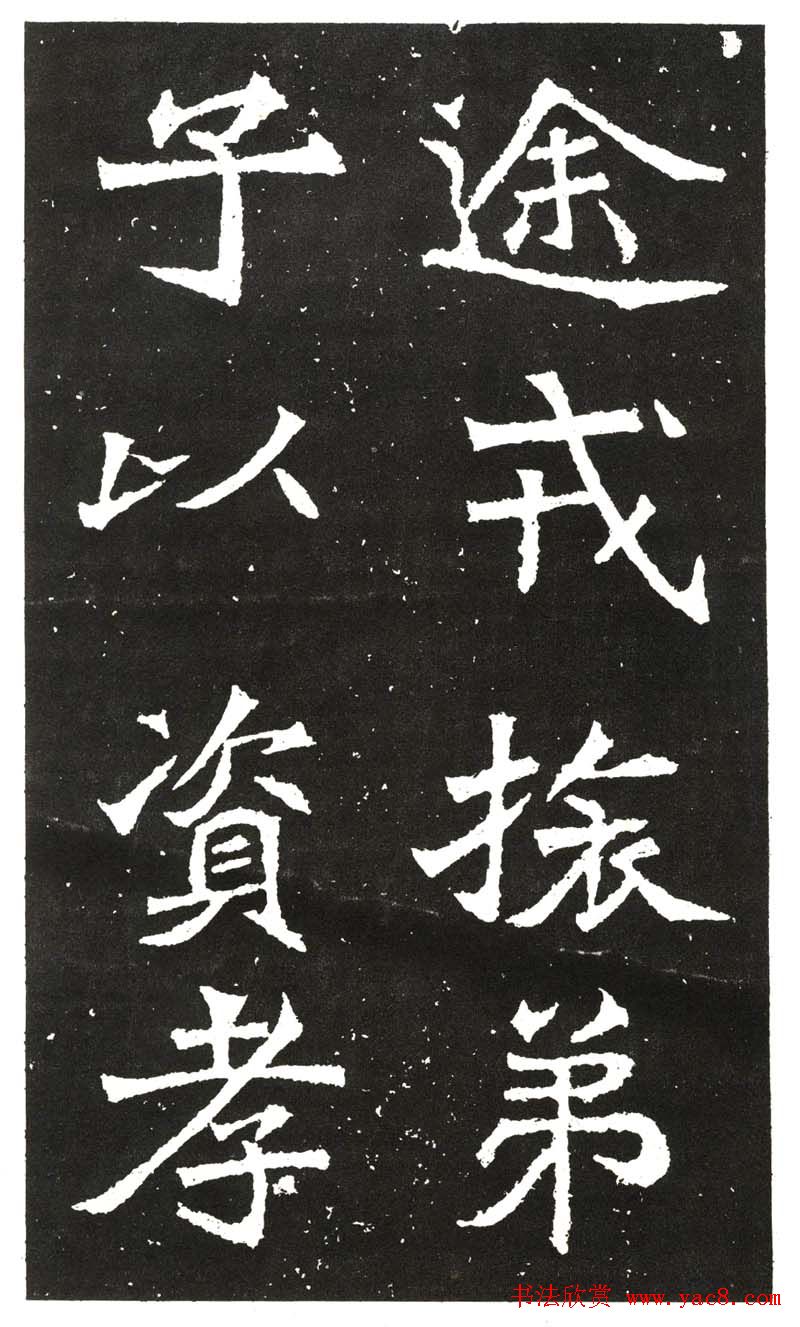 途戎旅弟
子以資孝
书法欣赏 www.yac8.com